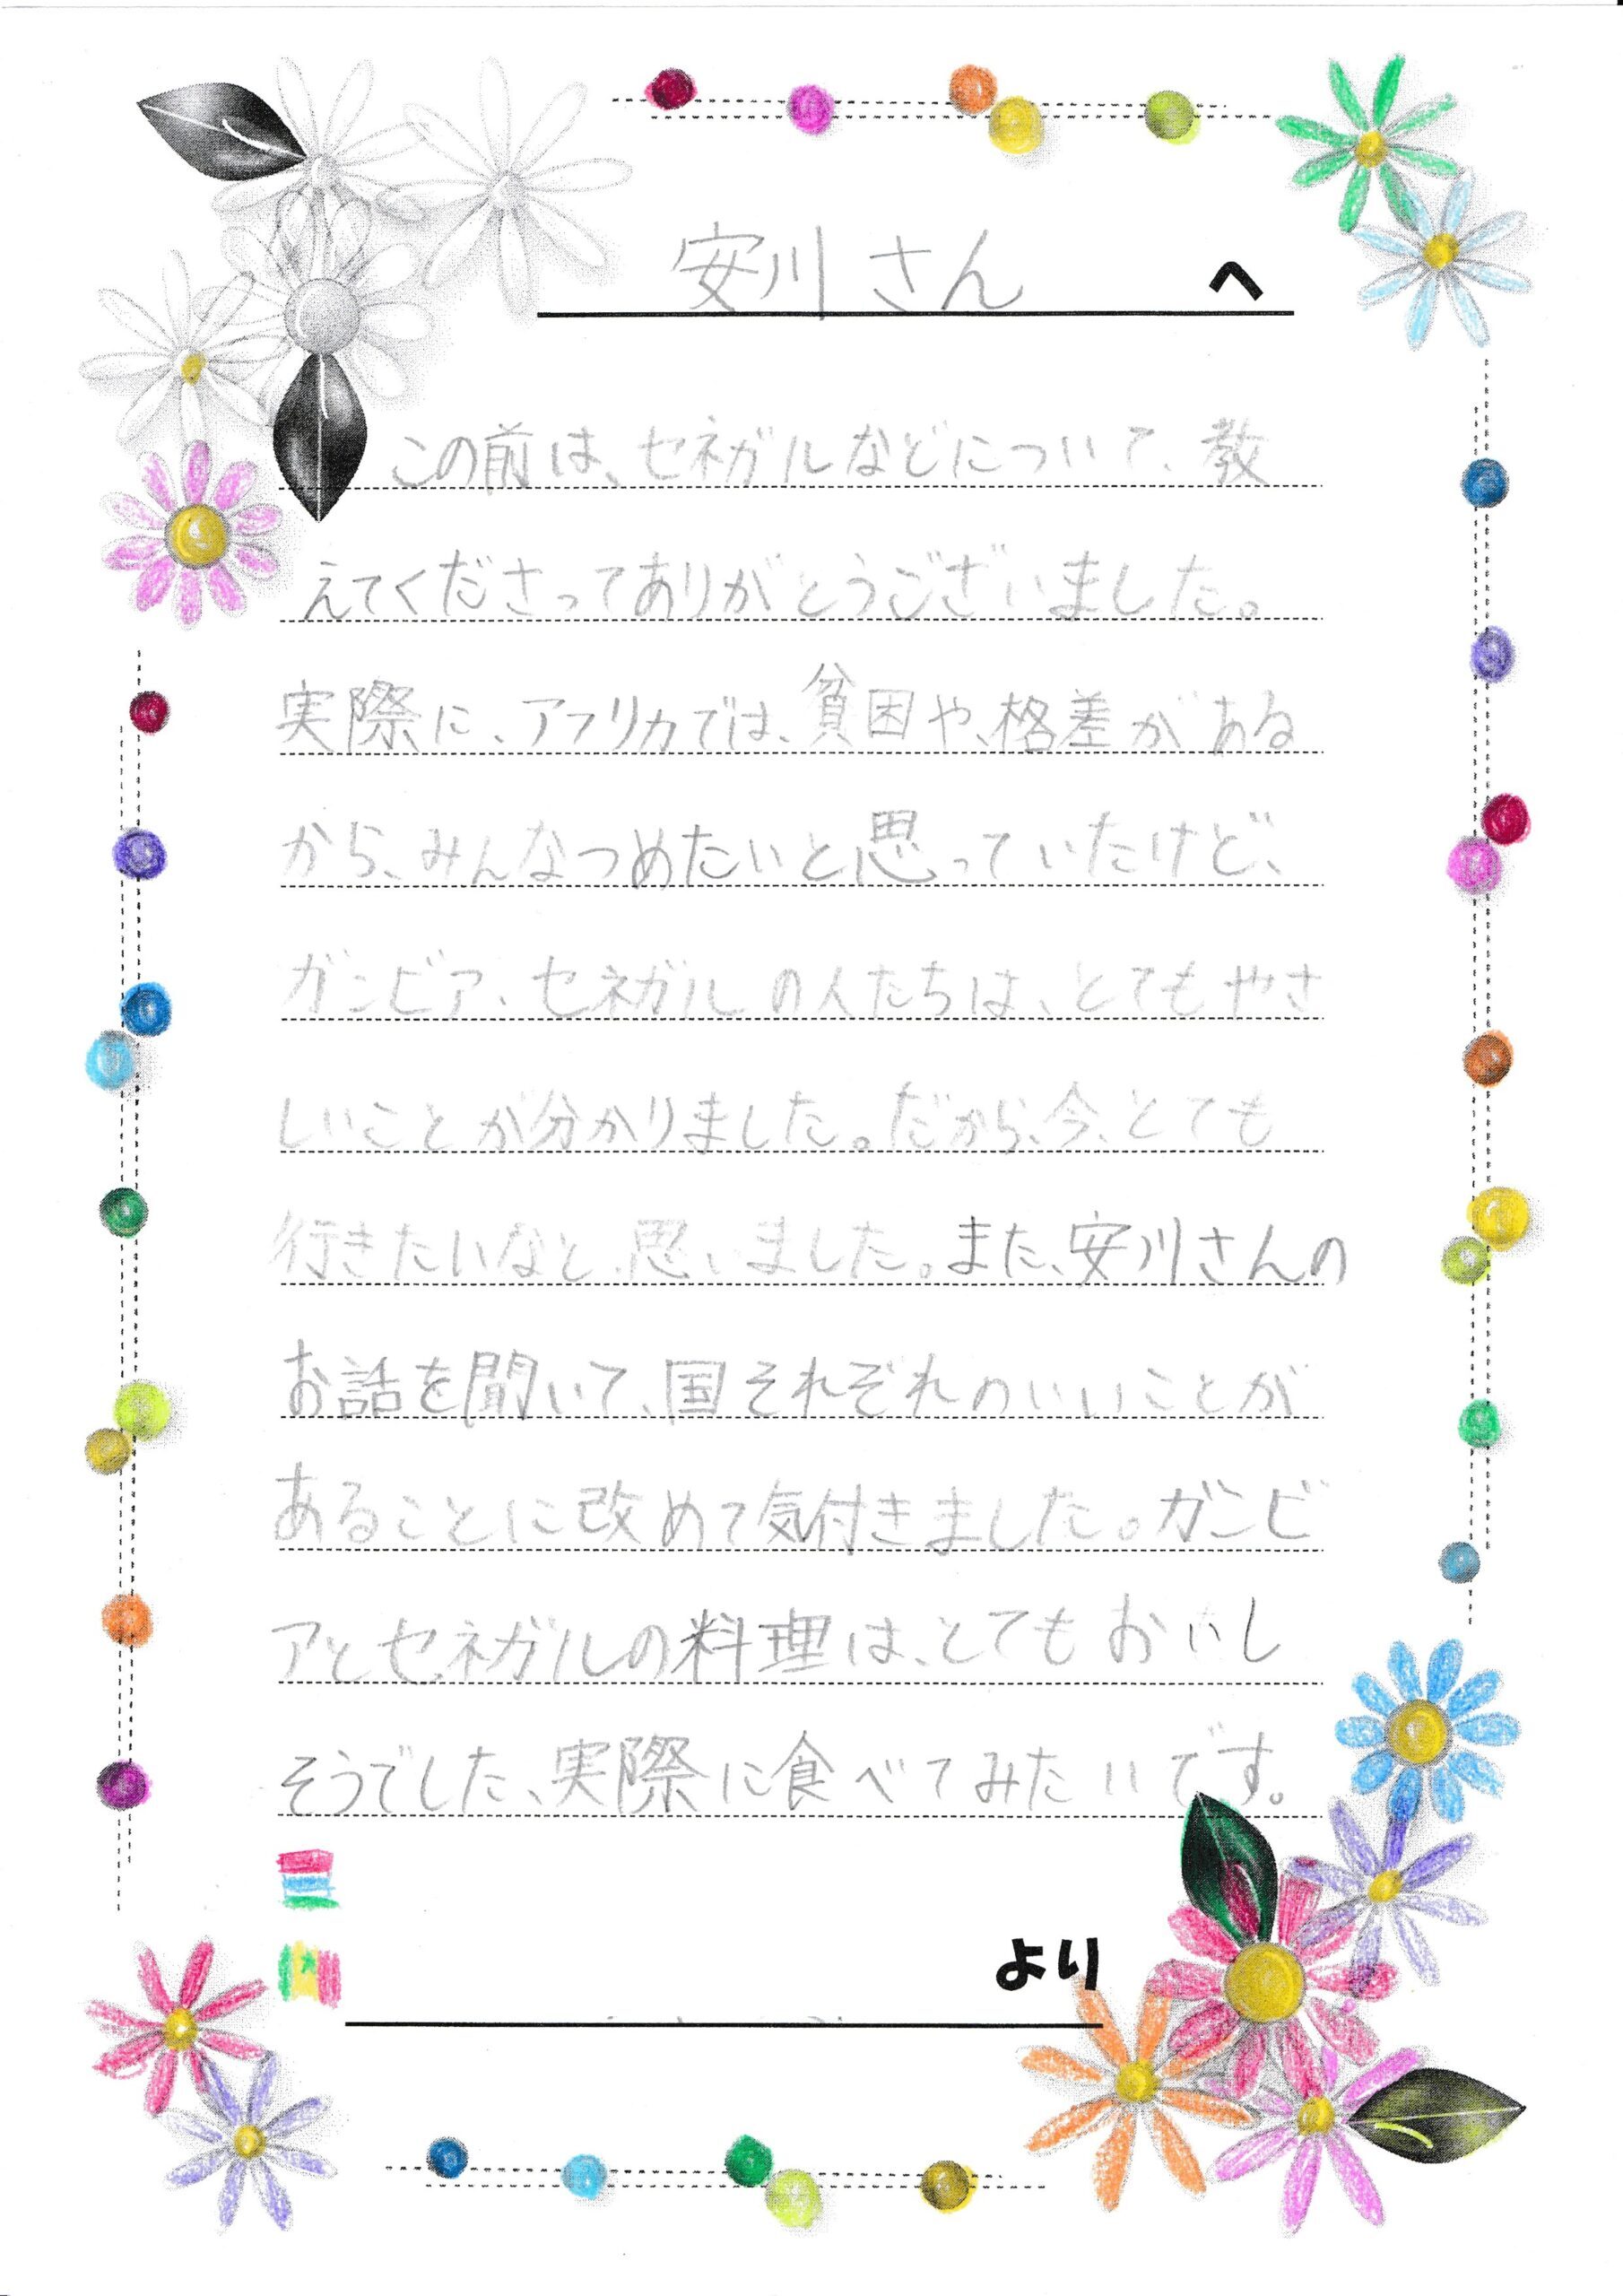 安川さん へ
この前は、セネガルなどについて、教
えてくださってありがとうございました。
実際に、アフリカでは、貧困や、格差がある
から、みんなつめたいと思っていたけど、
ガンビア、セネガルの人たちは、とてもやさ
しいことが分かりました。だから、今、とても
行きたいなと、思いました。また、安川さんの
お話を聞いて、国それぞれのいいことが
あることに改めて気付きました。ガンビ
アとセネガルの料理は、とてもおいし
そうでした、実際に食べてみたいです。
より